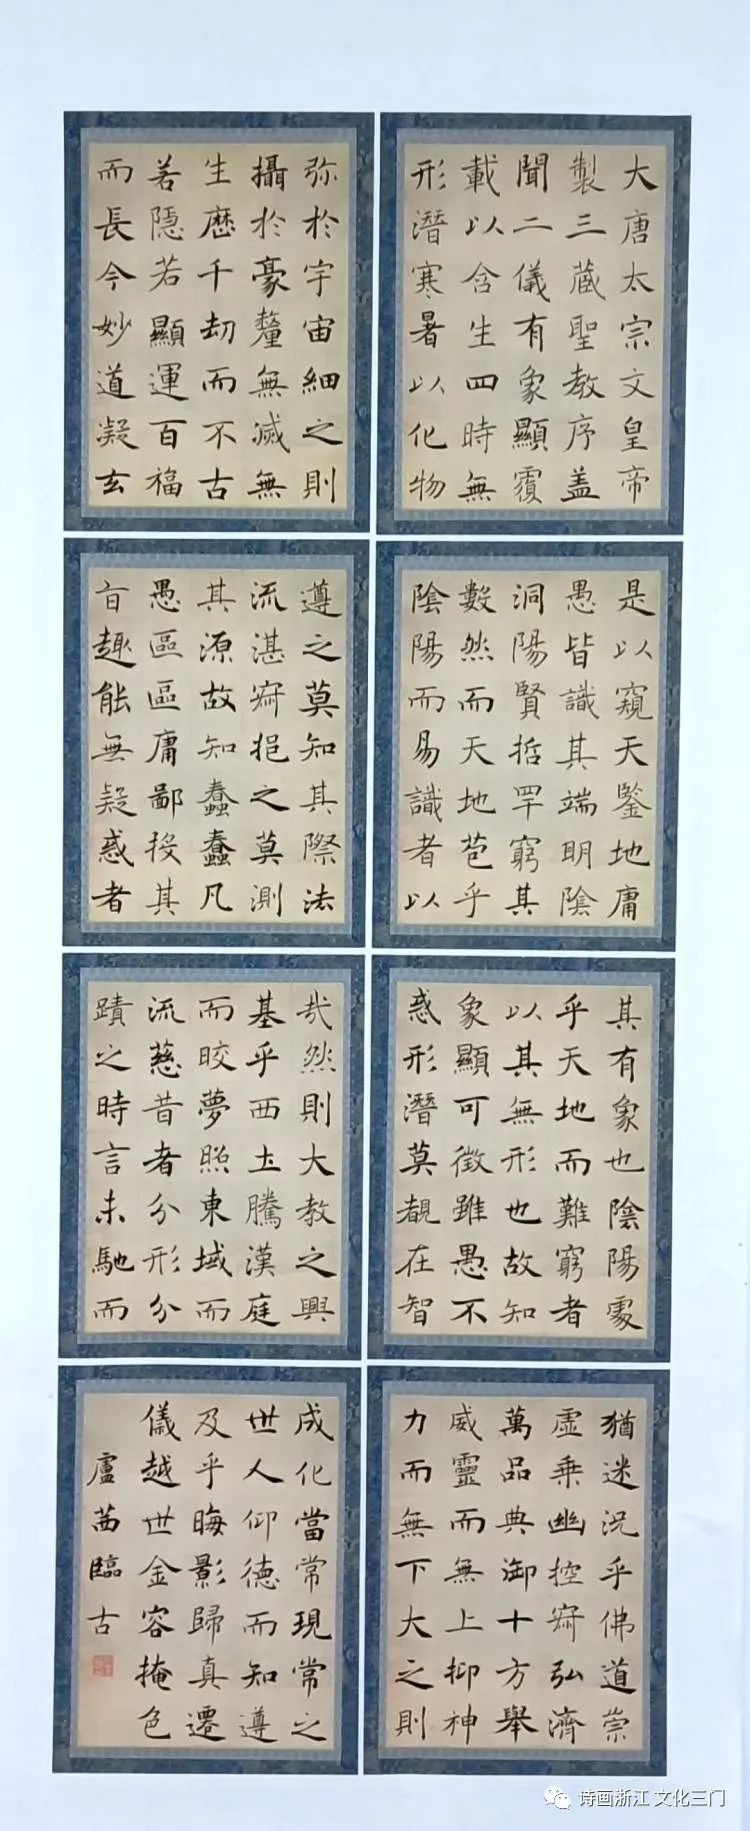 大唐太宗文皇帝
製三藏聖教序盖
聞二儀有象顯覆
載以含生四時無
形潛寒暑以化物
是以窺天鑒地庸
愚皆識其端明陰
洞陽賢哲罕窮其
數然而天地苞乎
陰陽而易識者以
其有象也陰陽處
乎天地而難窮者
以其無形也故知
象顯可徵雖愚不
惑形潛莫覩在智
猶迷況乎佛道崇
虛乗幽控寂弘濟
萬品典御十方舉
威靈而無上抑神
力而無下大之則
弥於宇宙細之則
攝於豪釐無滅無
生歷千劫而不古
若隱若顯運百福
而長今妙道凝玄
遵之莫知其際法
流湛寂挹之莫測
其源故知蠢蠢凡
愚區區庸鄙投其
旨趣能無疑惑者
哉然則大教之興
基乎西土騰漢庭
而皎夢照東域而
流慈昔者分形分
蹟之時言未馳而
成化當常現常之
世人仰德而知遵
及乎晦影歸真遷
儀越世金容掩色
盧茜臨古
诗画浙江 文化三门